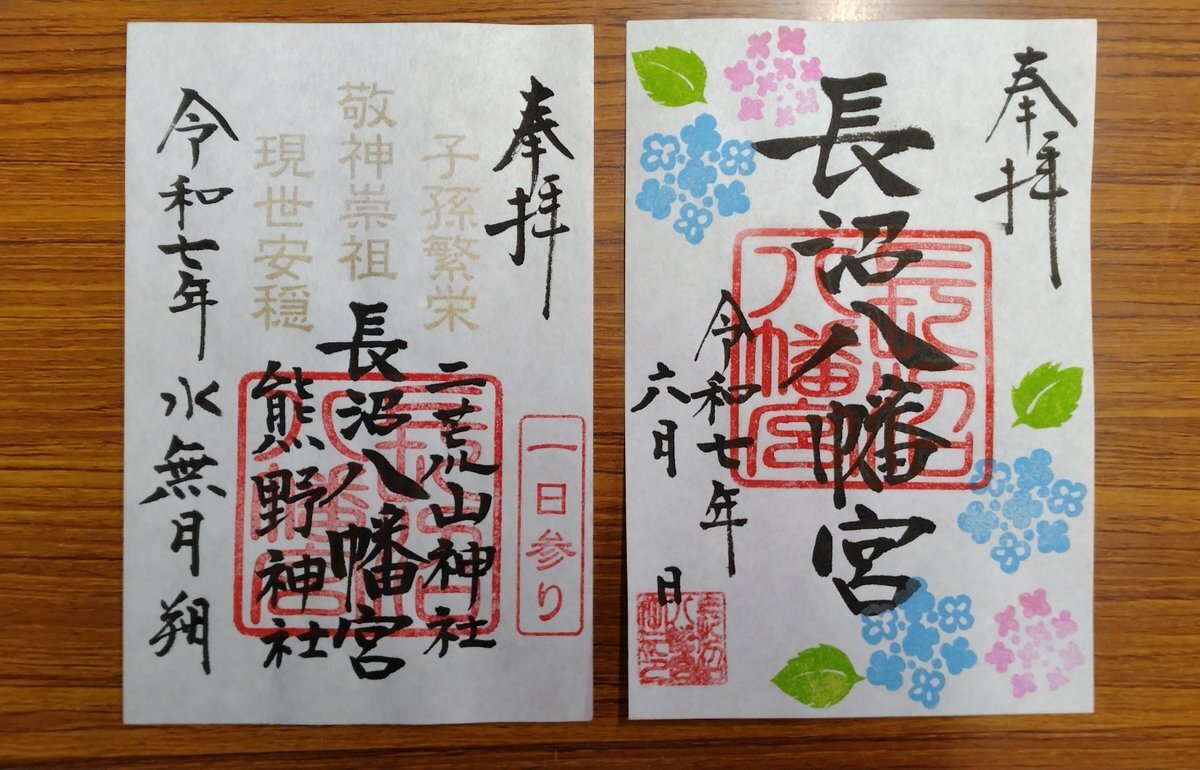 奉拝
子孫繁栄
敬神崇祖
現世安穏
二荒山神社
長沼八幡宮
熊野神社
令和七年 水無月 朔
一日参り
長沼八幡宮
奉拝
長沼八幡宮
令和七年
六月 日
長沼八幡宮